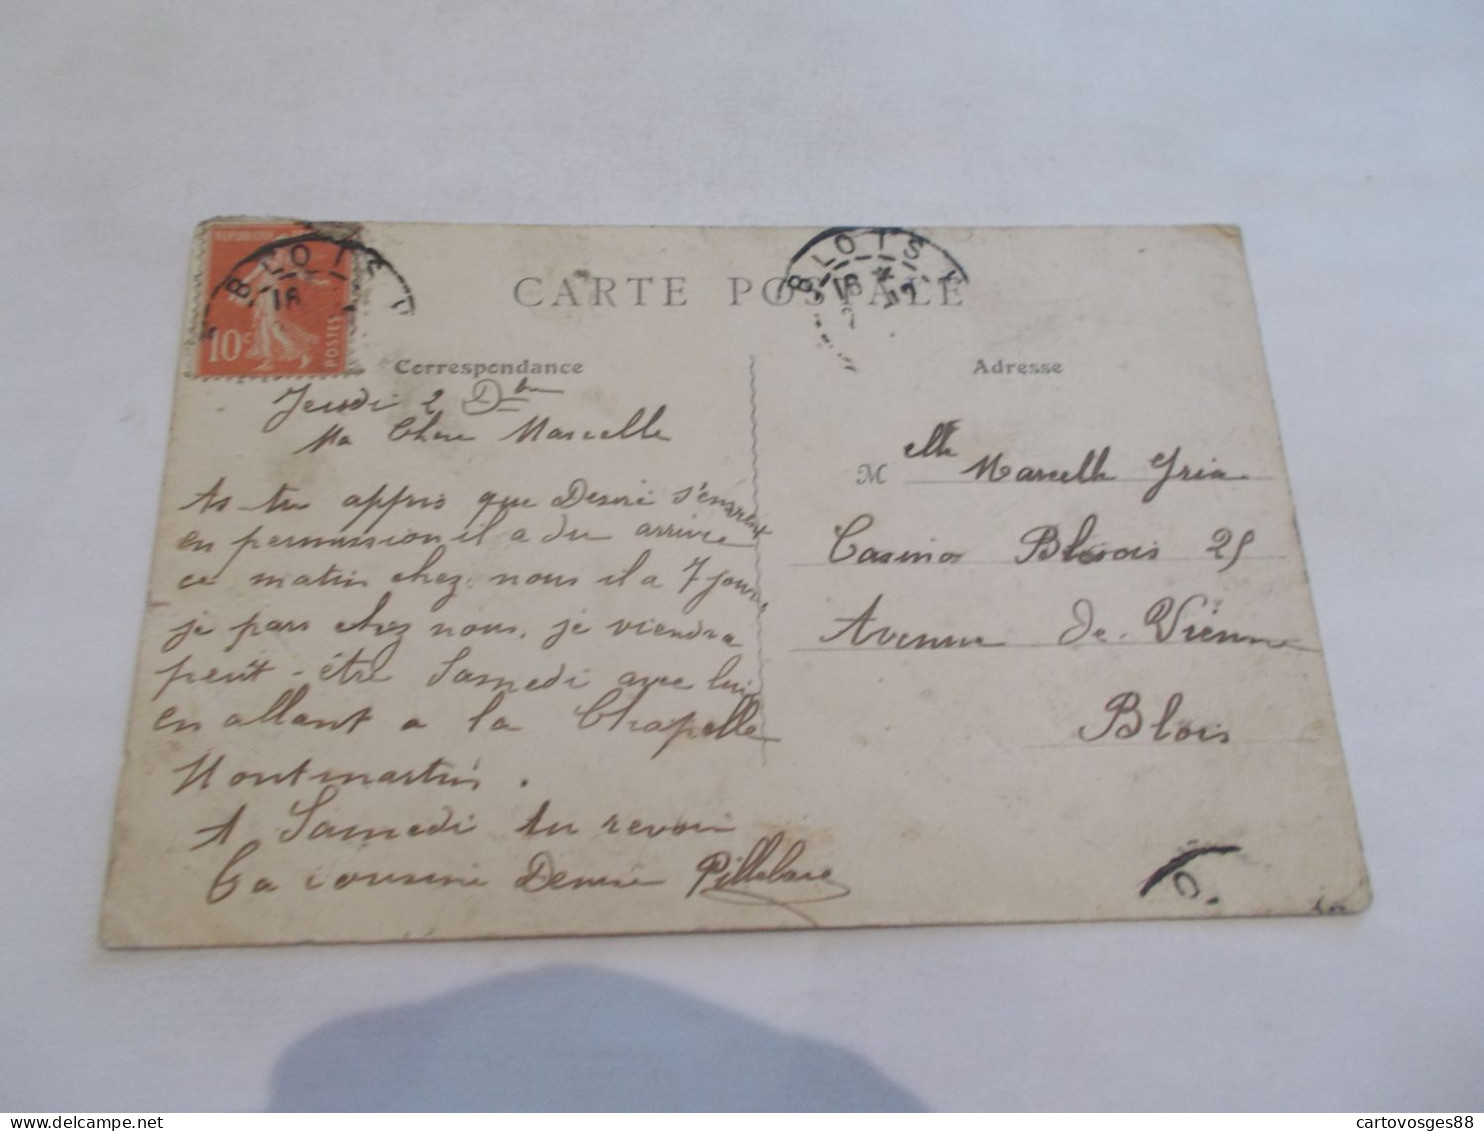 CARTE POSTALE
BLOIS
18
BLOIS
18 *
10c
POSTES
Correspondance
Jeudi 2 Dbre
Ma Chere Marcelle
As-tu appris que Desiré s'en vient
en permission il a du arrivé
ce matin chez nous il a 7 jours
je pars chez nous, je viendra
peut-être Samedi avec lui
en allant a la Chapelle
Montmartin.
A Samedi Au revoir
Ta cousine Denise
Adresse
Melle Marcelle
Casino Blesois 25
Avenue de Vienne
Blois
cartovosges88